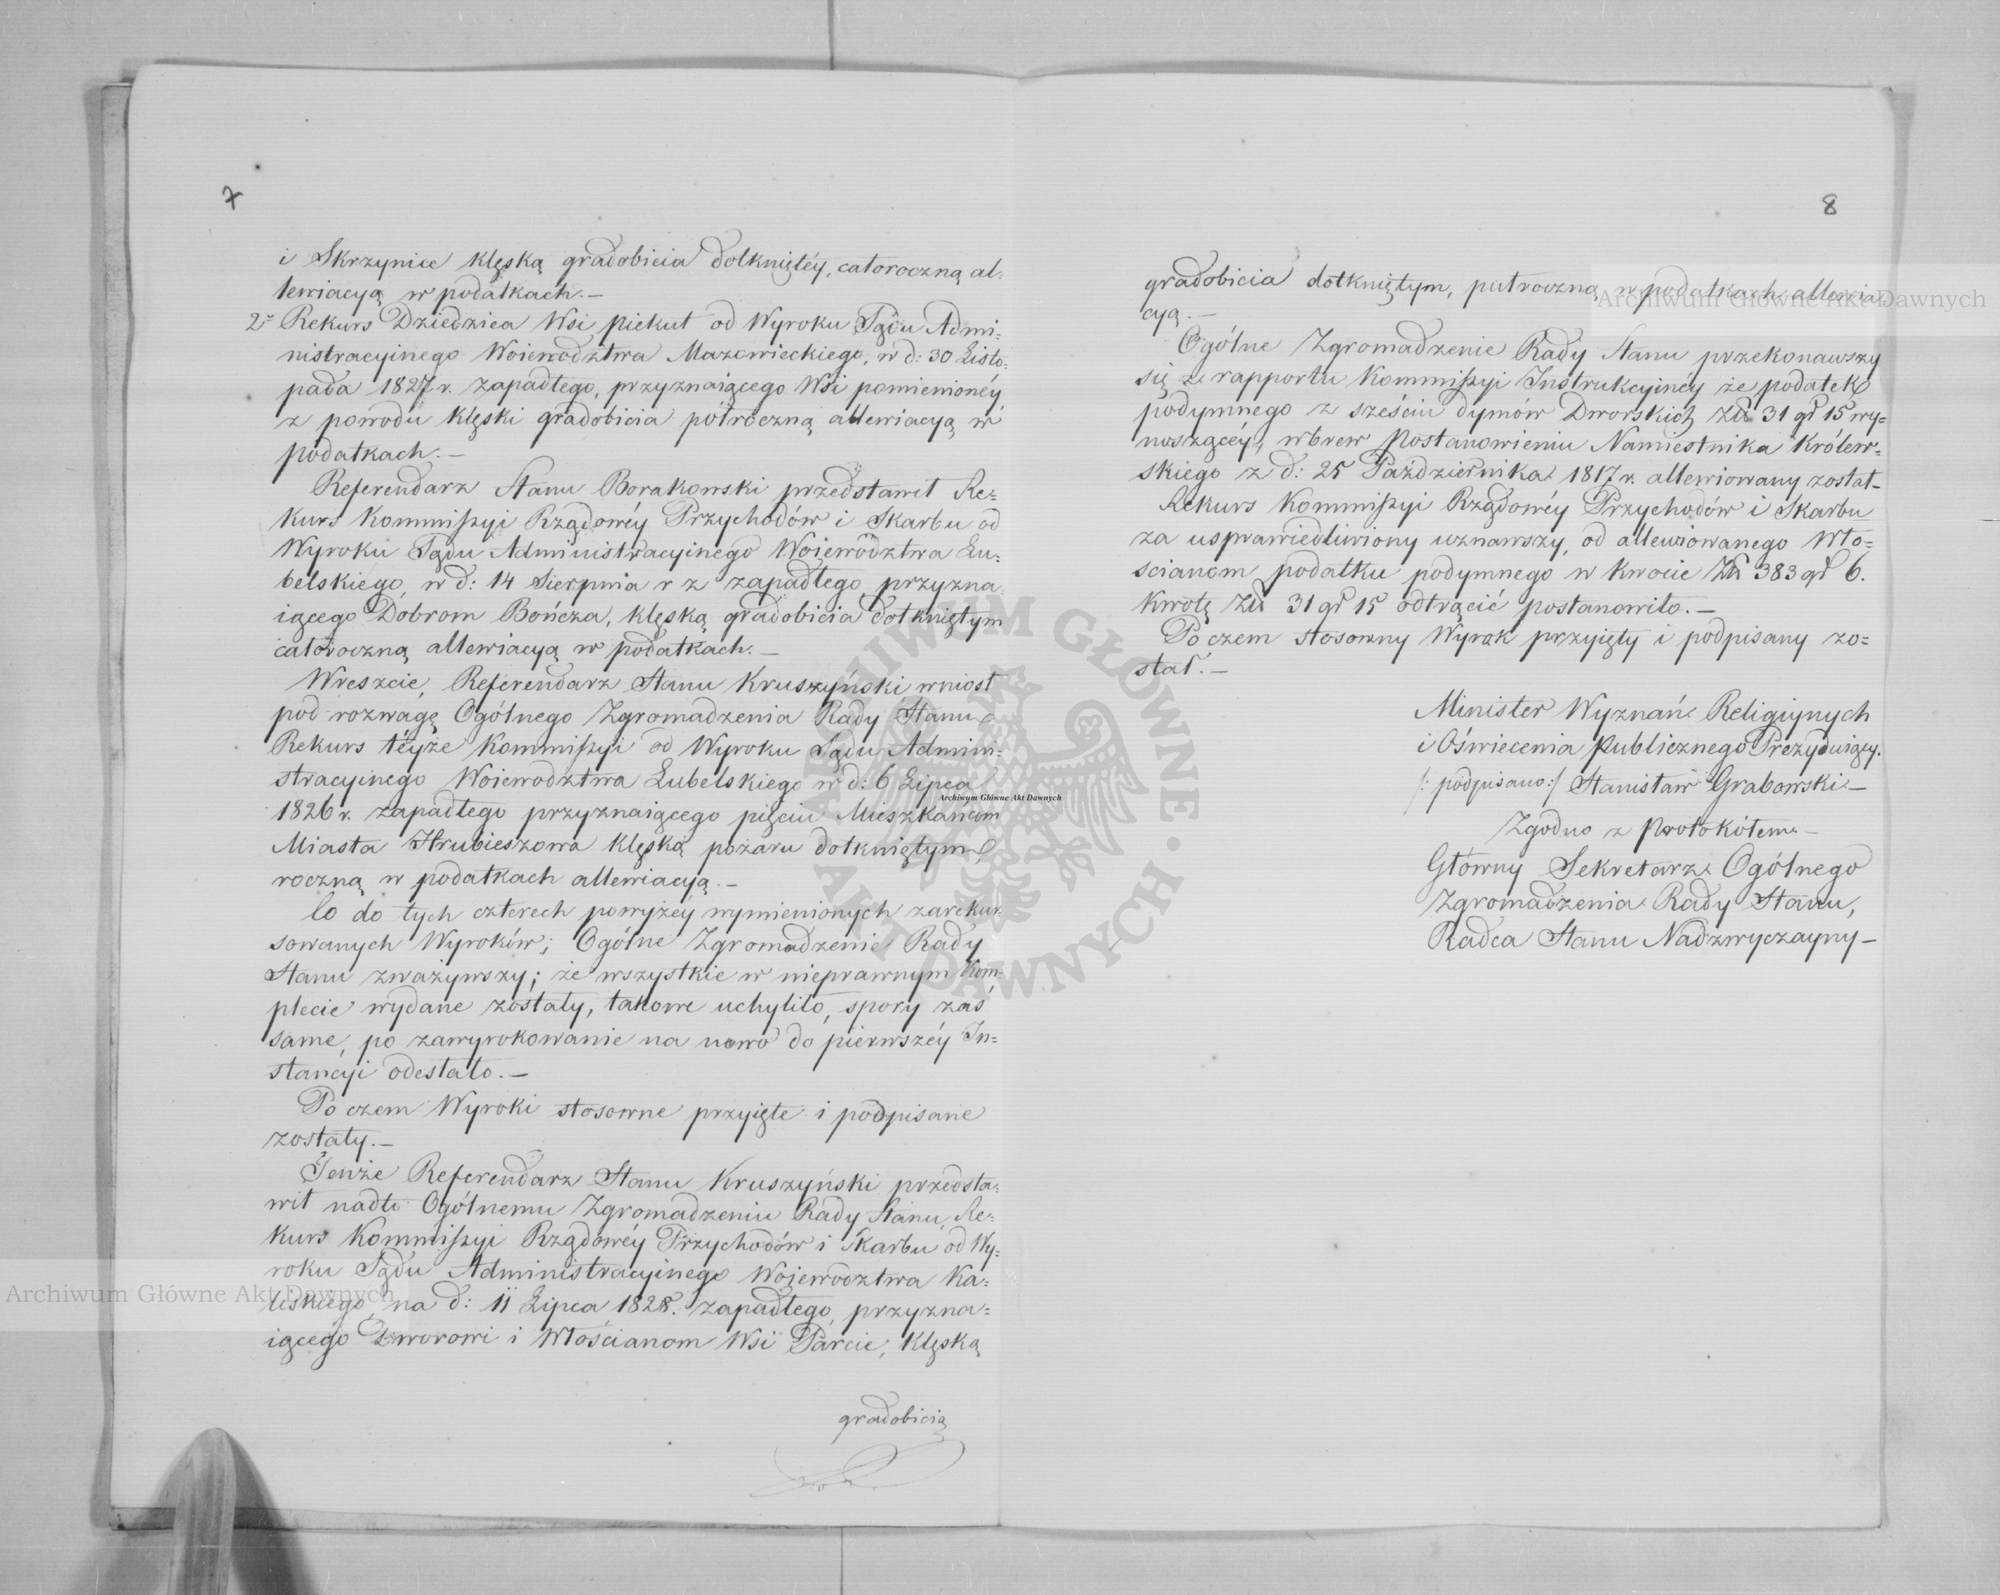 7
i Skrzynice klęską gradobicia dotkniętéy, całoroczną al=
lewiacyą w podatkach.—
2° Rekurs Dziedzica Wsi Piekut od Wyroku Sądu Admi=
nistracyinego Woiewodztwa Mazowieckiego, w d: 30 Listo=
pada 1827 r. zapadłego, przyznaiącego Wsi pomienionéy
z powodu klęski gradobicia półroczną allewiacyą w
podatkach.—
Referendarz Stanu Borakowski przedstawił Re=
kurs Kommissyi Rządowéy Przychodów i Skarbu od
Wyroku Sądu Administracyinego Woiewództwa Lu=
belskiego, w d: 14 Sierpnia r z zapadłego, przyzna=
iącego Dobrom Bończa, klęską gradobicia dotkniętym
całoroczną allewiacyą w podatkach.—
Wreszcie, Referendarz Stanu Kruszyński wniosł
pod rozwagę Ogólnego Zgromadzenia Rady Stanu
Rekurs téyże Kommissyi od Wyroku Sądu Admini=
stracyinego Woiewodztwa Lubelskiego w d: 6 Lipca
1826 r. zapadłego przyznaiącego pięciu Mieszkańcom
Miasta Hrubieszowa klęską pożaru dotkniętym,
roczną w podatkach allewiacyą.—
Co do tych czterech powyżéy wymienionych zarekur=
sowanych Wyroków; Ogólne Zgromadzenie Rady
Stanu zważywszy; że wszystkie w nieprawnym kom=
plecie wydane zostały, takowe uchyliło, spory zaś
same, po zawyrokowanie na nowo do pierwszéy In=
stancyi odesłało.—
Po czem Wyroki stosowne przyięte i podpisane
zostały.—
Tenże Referendarz Stanu Kruszyński przedsta=
wił nadto Ogólnemu Zgromadzeniu Rady Stanu, Re=
kurs Kommissyi Rządowéy Przychodów i Skarbu od Wy=
roku Sądu Administracyinego Woiewodztwa Ka=
liskiego, na d: 11 Lipca 1828. zapadłego, przyzna=
iącego Dworowi i Włościanom Wsi Parcie, klęską
gradobicia
8
gradobicia dotkniętym, pułroczną w podatkach allewia=
cyą.—
Ogólne Zgromadzenie Rady Stanu przekonawszy
się z rapportu Kommissyi Instrukcyinéy że podatek
podymnego z sześciu dymów Dworskich Złł 31 gr 15 wy=
noszącéy, wbrew Postanowieniu Namiestnika Królew=
skiego z d: 25 Października 1817 r. allewiowany został—
Rekurs Kommissyi Rządowéy Przychodów i Skarbu
za usprawiedliwiony uznawszy, od allewiowanego Wło=
scianom podatku podymnego w kwocie Złł 383 gr 6.
kwotę Złł 31 gr 15 odtrącić postanowiło.—
Po czem stosowny Wyrok przyięty i podpisany zo=
stał.—
Minister Wyznań Religiynych
i Oświecenia Publicznego Prezyduiący.
/: podpisano :/ Stanisław Grabowski—
Zgodno z Protokółem—
Główny Sekretarz Ogólnego
Zgromadzenia Rady Stanu,
Radca Stanu Nadzwyczayny—
Archiwum Główne Akt Dawnych
Archiwum Główne Akt Dawnych
Archiwum Główne Akt Dawnych
ARCHIWUM GŁÓWNE · AKT DAWNYCH ·